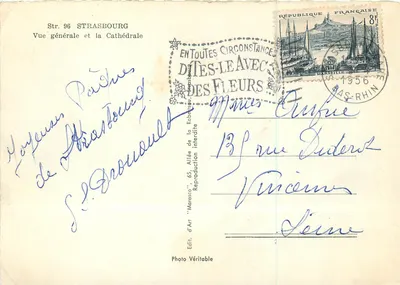 Str. 96 STRASBOURG
Vue générale et la Cathédrale
Joyeuses Pâques
de Strasbourg
EN TOUTES CIRCONSTANCES
DITES-LE AVEC
DES FLEURS
RÉPUBLIQUE FRANÇAISE
8F
1956
BAS-RHIN
135 rue Diderot
Vincennes
Seine
Edit. d'Art
65, Allée de la Robertsau
Reproduction Interdite
Photo Véritable